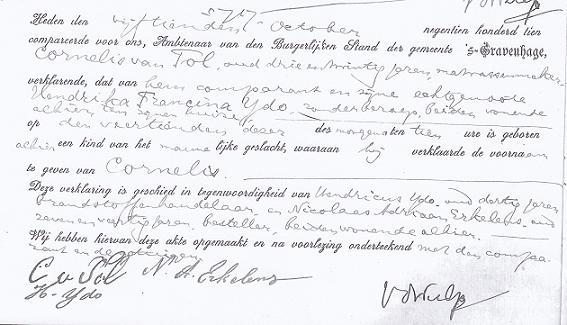 Heden den vijftienden October negentien honderd tien
compareerde voor ons, Ambtenaar van den Burgerlijken Stand der gemeente 's-Gravenhage,
Cornelis van Tol, oud drie en twintig jaren, matrassenmaker
verklarende, dat van hem comparant en zijne echtgenoote
Hendrika Francina Ydo, zonder beroep, beiden wonende
alhier, ten zijnen huize
op den veertienden dezer des morgens tien ure is geboren
alhier een kind van het mannelijke geslacht, waaraan hij verklaarde de voornaam
te geven van Cornelis.
Deze verklaring is geschied in tegenwoordigheid van Hendricus Ydo, oud dertig jaren
brandstoffenhandelaar en Nicolaas Adriaan Erkelens, oud
zeven en veertig jaren, besteller, beiden wonende alhier.
Wij hebben hiervan deze akte opgemaakt en na voorlezing onderteekend met den compa-
rant en de getuigen.
C v Tol N. A. Erkelens
H. Ydo